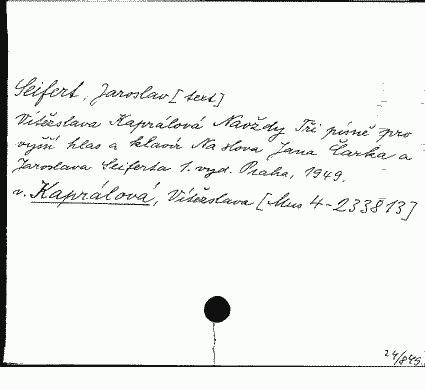 Seifert, Jaroslav [text]
Vítězslava Kaprálová Navždy Tři písně pro
vyšší hlas a klavír Na slova Jana Čarka a
Jaroslava Seiferta 1. vyd. Praha, 1949.
v. Kaprálová, Vítězslava [Mus 4-233813]
24/849.